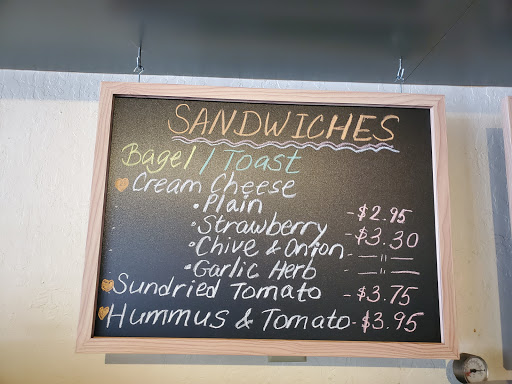 SANDWICHES
Bagel / Toast
Cream Cheese
• Plain - $2.95
• Strawberry - $3.30
• Chive & Onion - — " —
• Garlic Herb - — " —
Sundried Tomato - $3.75
Hummus & Tomato - $3.95